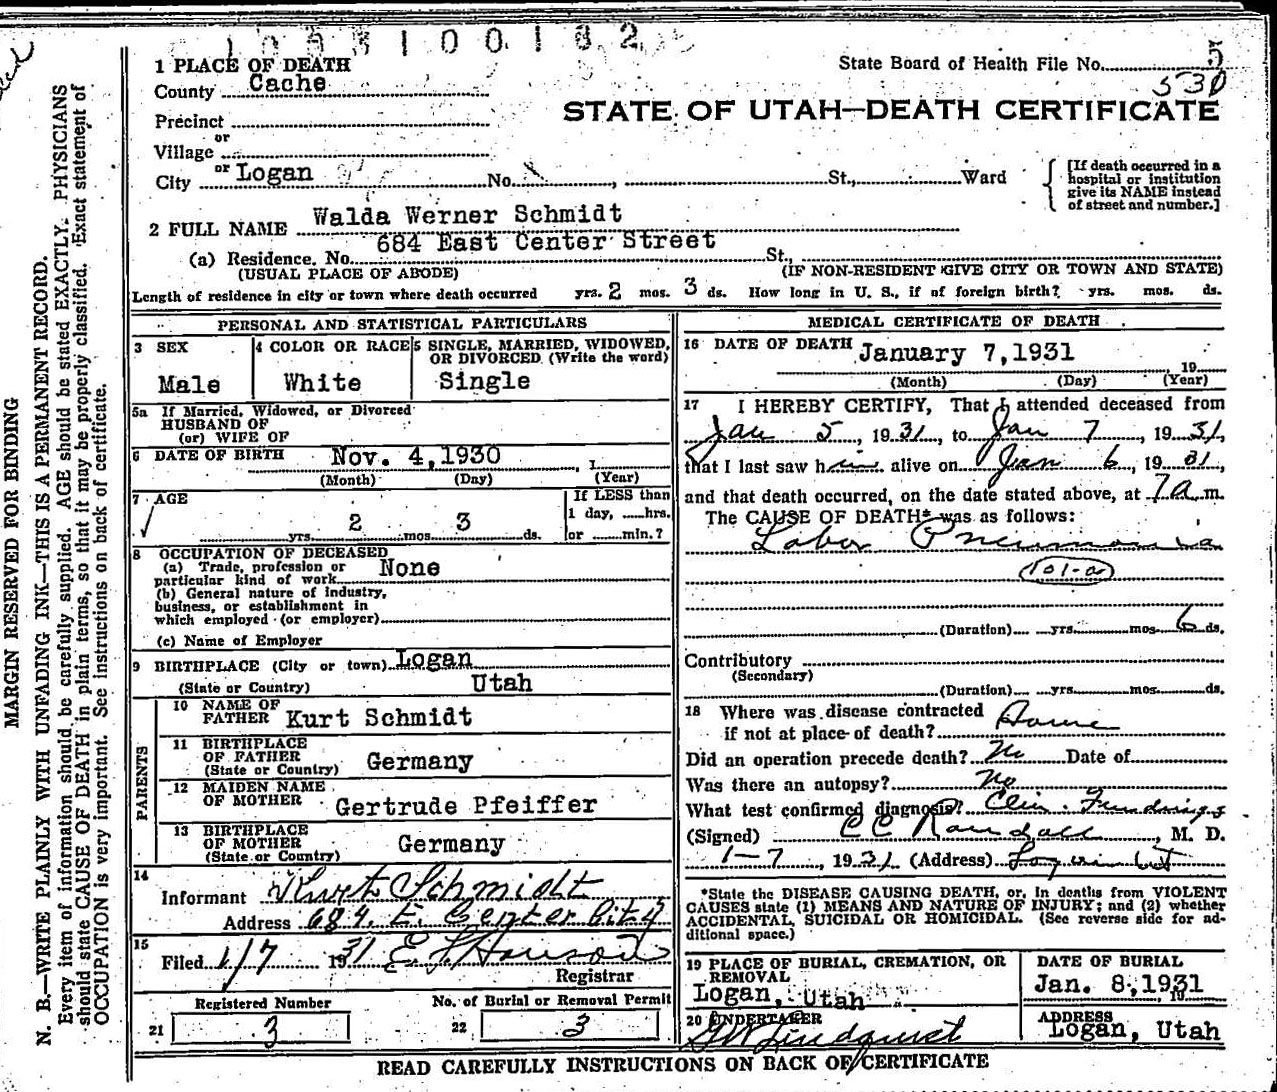 State Board of Health File No.
530
STATE OF UTAH—DEATH CERTIFICATE
1 PLACE OF DEATH
County Cache
Precinct
or
Village
or
City Logan No. , St., Ward
[If death occurred in a
hospital or institution
give its NAME instead
of street and number.]
2 FULL NAME Walda Werner Schmidt
(a) Residence. No. 684 East Center Street St.,
(USUAL PLACE OF ABODE) (IF NON-RESIDENT GIVE CITY OR TOWN AND STATE)
Length of residence in city or town where death occurred yrs. 2 mos. 3 ds. How long in U. S., if of foreign birth? yrs. mos. ds.
PERSONAL AND STATISTICAL PARTICULARS
3 SEX
Male
4 COLOR OR RACE
White
5 SINGLE, MARRIED, WIDOWED,
OR DIVORCED (Write the word)
Single
5a If Married, Widowed, or Divorced
HUSBAND OF
(or) WIFE OF
6 DATE OF BIRTH Nov. 4, 1930 , 1
(Month) (Day) (Year)
7 AGE
yrs. 2 mos. 3 ds.
If LESS than
1 day, hrs.
or min.?
8 OCCUPATION OF DECEASED
(a) Trade, profession or
particular kind of work None
(b) General nature of industry,
business, or establishment in
which employed (or employer)
(c) Name of Employer
9 BIRTHPLACE (City or town) Logan
(State or Country) Utah
PARENTS
10 NAME OF
FATHER Kurt Schmidt
11 BIRTHPLACE
OF FATHER
(State or Country) Germany
12 MAIDEN NAME
OF MOTHER Gertrude Pfeiffer
13 BIRTHPLACE
OF MOTHER
(State or Country) Germany
14
Informant Kurt Schmidt
Address 684 E. Center City
15
Filed 1/7 1931
Registrar
Registered Number
21 3
No. of Burial or Removal Permit
22 3
MEDICAL CERTIFICATE OF DEATH
16 DATE OF DEATH January 7, 1931 19
(Month) (Day) (Year)
17 I HEREBY CERTIFY, That I attended deceased from
Jan 5, 1931, to Jan 7, 1931,
that I last saw him alive on Jan 6, 1931,
and that death occurred, on the date stated above, at 7 a m.
The CAUSE OF DEATH* was as follows:
Lobar Pneumonia
101-a
(Duration) yrs. mos. 6 ds.
Contributory
(Secondary)
(Duration) yrs. mos. ds.
18 Where was disease contracted
if not at place of death? Home
Did an operation precede death? No Date of
Was there an autopsy? No
What test confirmed diagnosis? Clin. Findings
(Signed) CC Randall, M. D.
1-7, 1931 (Address) Logan Ut
*State the DISEASE CAUSING DEATH, or, in deaths from VIOLENT
CAUSES state (1) MEANS AND NATURE OF INJURY; and (2) whether
ACCIDENTAL, SUICIDAL OR HOMICIDAL. (See reverse side for ad-
ditional space.)
19 PLACE OF BURIAL, CREMATION, OR
REMOVAL
Logan, Utah
DATE OF BURIAL
Jan. 8, 1931, 19
20 UNDERTAKER
Lindquist
ADDRESS
Logan, Utah
READ CAREFULLY INSTRUCTIONS ON BACK OF CERTIFICATE
MARGIN RESERVED FOR BINDING
N. B.—WRITE PLAINLY WITH UNFADING INK—THIS IS A PERMANENT RECORD.
Every item of information should be carefully supplied. AGE should be stated EXACTLY. PHYSICIANS
should state CAUSE OF DEATH in plain terms, so that it may be properly classified. Exact statement of
OCCUPATION is very important. See instructions on back of certificate.